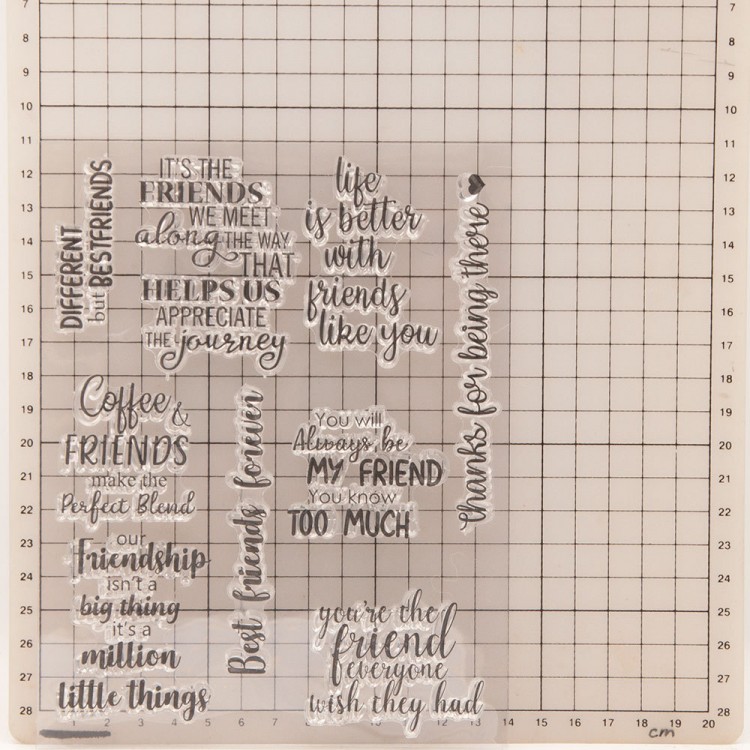 7
8
9
10
11
12
13
14
15
16
17
18
19
20
21
22
23
24
25
26
27
28
7
8
9
10
11
12
13
14
15
16
17
18
19
20
21
22
23
24
25
26
27
28
DIFFERENT
but BESTFRIENDS
IT'S THE
FRIENDS
WE MEET
along THE WAY
THAT
HELPS US
APPRECIATE
THE journey
life
is better
with
friends
like you
thanks for being there
Coffee &
FRIENDS
make the
Perfect Blend
Best friends forever
You will
Always be
MY FRIEND
You know
TOO MUCH
our
Friendship
isn't a
big thing
it's a
million
little things
you're the
friend
everyone
wish they had
1 2 3 4 5 6 7 8 10 12 13 14 15 16 17 18 19 20
cm